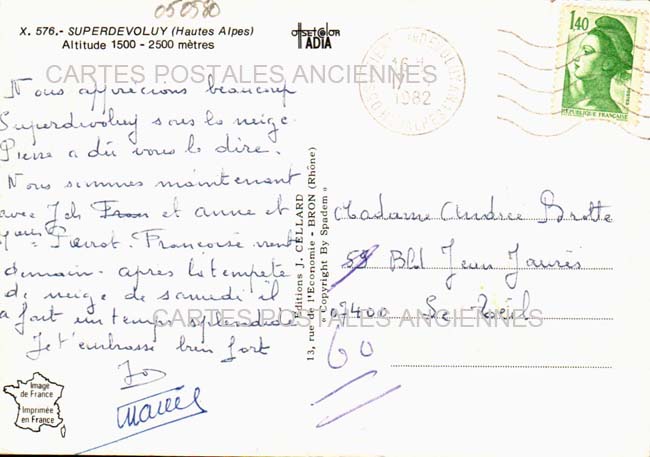 050580
X. 576.- SUPERDEVOLUY (Hautes Alpes)
Altitude 1500 - 2500 mètres
offset color
IADIA
CARTES POSTALES ANCIENNES
Nous apprécions beaucoup
Superdevoluy sous la neige
Pierre a dû vous le dire.
Nous sommes maintenant
avec Jch Fran et anne et
Pierrot. Françoise vient
demain. après la tempete
de neige de samedi il
a fait un temps splendide
Je t'embrasse bien fort
Jo
Marcel
Image
de France
Imprimée
en France
Éditions J. CELLARD
13, rue de l'Economie - BRON (Rhône)
« Copyright By Spadem »
16 H
17
1982
1,40
RÉPUBLIQUE FRANÇAISE
Madame Andrée Brotte
59 Bld Jean Jaurès
07400 Le Teil
60
CARTES POSTALES ANCIENNES